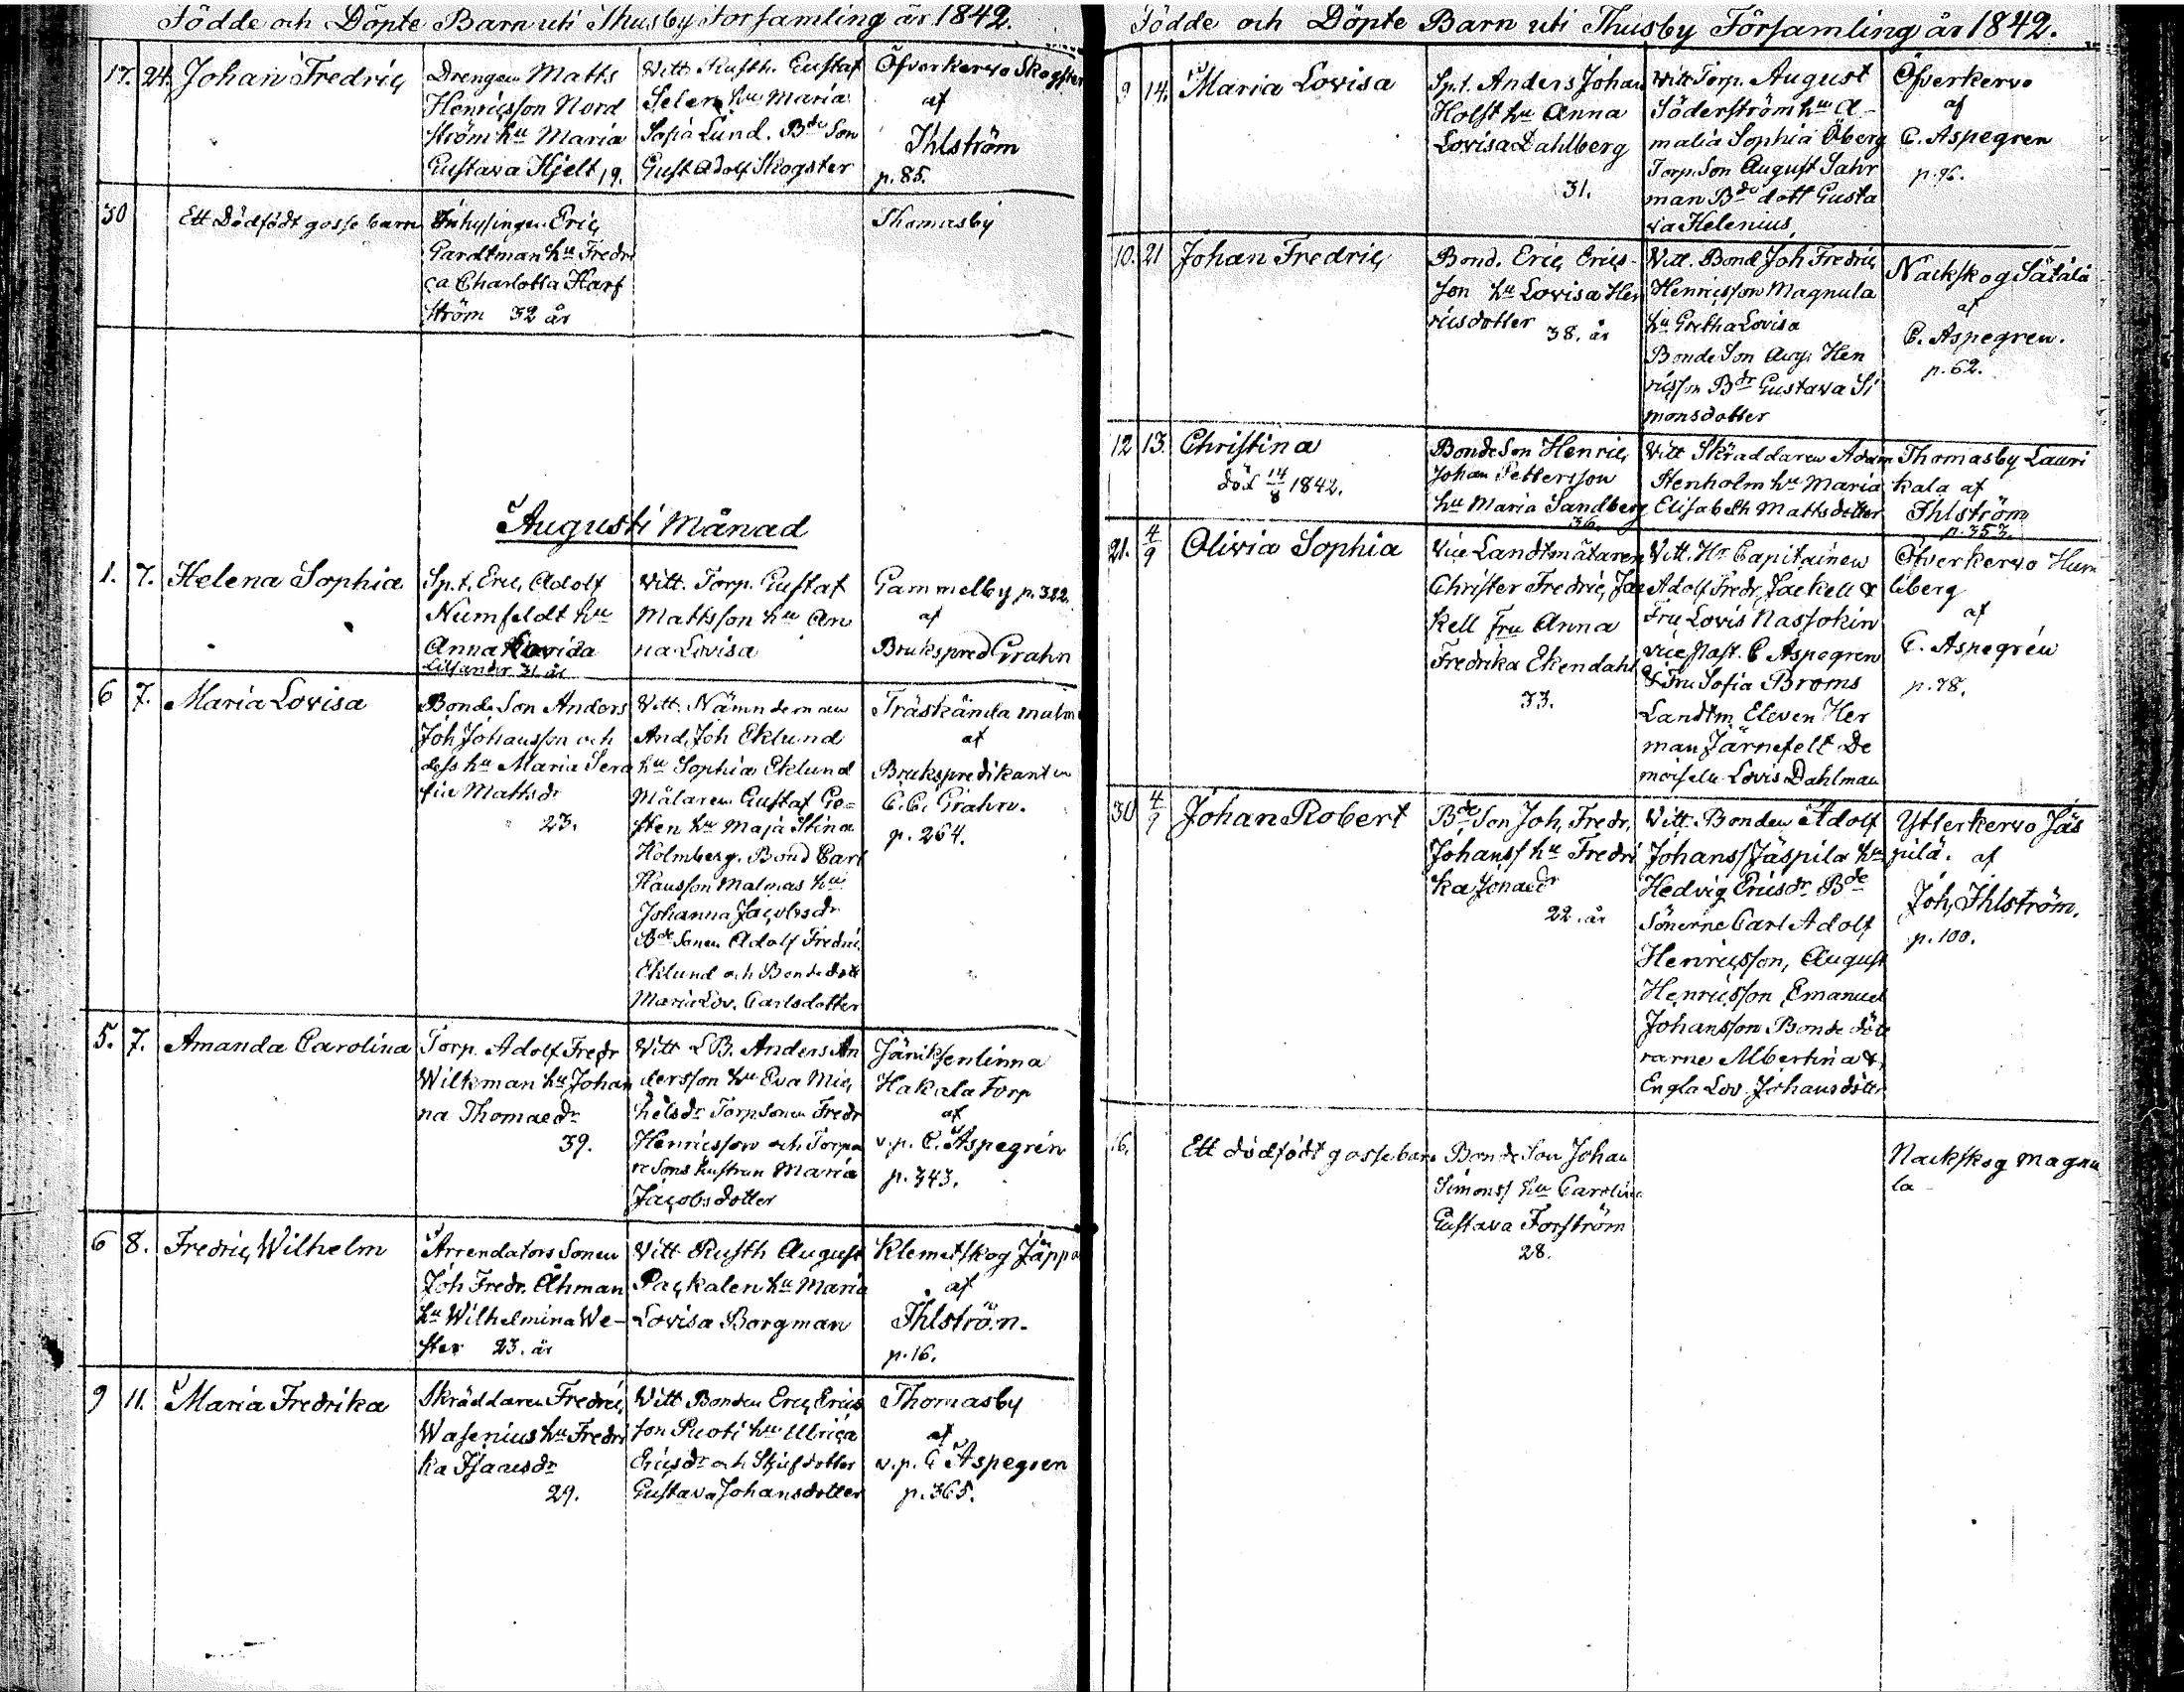 Födde och Döpte Barn uti Thusby Församling år 1842.
17. 24. Johan Fredric
Drengen Matts
Henricsson Nord
ström hu Maria
Gustava Hjelt 19.
Vitt. Rusth. Gustaf
Selen hu Maria
Sofia Lund. Bde Son
Gust Adolf Skogster
Öfverkervo Skogster
af
Ihlström
p. 85.
30
Ett Dödfödt gosse barn
Inhysingen Eric
Gardtman hu Fredri
ca Charlotta Harf
ström 32 år
Thomasby
Augusti Månad
1. 7. Helena Sophia
Sp.t. Eric Adolf
Numfeldt hu
Anna Lovisa
31 år
Vitt. Torp. Gustaf
Mattsson hu An
na Lovisa
Gammelby p. 322
af
Brukspred Grahn
6 7. Maria Lovisa
Bonde Son Anders
Joh Johansson och
dess hu Maria Sera
fia Mattsdr
23.
Vitt. Nämndeman
And. Joh Eklund
hu Sophia Eklund
Målaren Gustaf Ge=
sten hu Maja Stina
Holmberg. Bond Carl
Hansson Malmas hu
Johanna Jacobsdr
Bde Sonen Adolf Fredric
Eklund och Bonde dott
Maria Lov. Carlsdotter
Träskända malm
af
Brukspredikanten
C. C. Grahn.
p. 264.
5. 7. Amanda Carolina
Torp. Adolf Fredr
Wilkman hu Johan
na Thomaedr
39.
Vitt L.B. Anders An
dersson hu Eva Mic
helsdr Torp Sonen Fredr
Henricsson och Torpa
re Sons hustrun Maria
Jacobsdotter
Jäniksenlinna
Hakala Torp
af
v. p. C. Aspegrén
p. 343.
6 8. Fredric Wilhelm
Arrendators Sonen
Joh Fredr. Åhman
hu Wilhelmina We-
ster 23. år
Vitt Rusth August
Packalen hu Maria
Lovisa Borgman
Klemetskog Jäppi
af
Ihlström.
p. 16.
9 11. Maria Fredrika
Skräddaren Fredric
Wasenius hu Fredri
ka Isacsdr
29.
Vitt Bonden Eric Erics
son Puoti hu Ulrica
Ericsdr och Stjufdotter
Gustava Johansdotter
Thomasby
af
v. p. C Aspegren
p. 365.
Födde och Döpte Barn uti Thusby Församling år 1842.
9 14. Maria Lovisa
Sp.t. Anders Johan
Holst hu Anna
Lovisa Dahlberg
31.
Vitt Torp. August
Söderström hu A-
malia Sophia Öberg
Torp. Son August Sahr
man Bde dott Gusta
va Helenius.
Öfverkervo
af
C. Aspegren
p. 96.
10. 21 Johan Fredric
Bond. Eric Erics-
son hu Lovisa Hen
ricsdotter 38. år
Vitt. Bond Joh Fredric
Henricsson Magnula
hu Gretha Lovisa
Bonde Son Aug. Hen
ricsson Bdr Gustava Si
monsdotter
Nackskog Sätälä
af
C. Aspegren.
p. 62.
12 13. Christina
död 14/8 1842.
Bonde Son Henric
Johan Pettersson
hu Maria Sandberg
36.
Vitt Skräddaren Adam
Stenholm hu Maria
Elisabeth Mattsdotter
Thomasby Lauri
kala af
Ihlström
p. 353.
21. 4/9 Olivia Sophia
Vice Landtmätaren
Christer Fredric Jae
kell Fru Anna
Fredrika Ekendahl
33.
Vitt. Hr Capitainen
Adolf Fredr. Jaekell &
Fru Lovis Nassokin
vice past. C Aspegren
& Fru Sofia Broms
Landtm. Eleven Her
man Järnefelt De
moiselle Lovis Dahlman
Öfverkervo Hum
leberg
af
C. Aspegrén
p. 98.
30 4/9 Johan Robert
Bde Son Joh. Fredr.
Johanss hu Fredri
ka Jonaedr
22. år
Vitt. Bonden Adolf
Johanss Jäspilä hu
Hedvig Ericsdr Bde
Sönerne Carl Adolf
Henricsson, August
Henricsson Emanuel
Johansson Bonde döt
rarne Albertina &
Engla Lov. Johansdotter
Ytterkervo Jäs
pilä. af
Joh. Ihlström.
p. 100.
16.
Ett dödfödt gossebarn
Bonde Son Johan
Simonss hu Carolina
Gustava Forström
28.
Nackskog Magnu
la